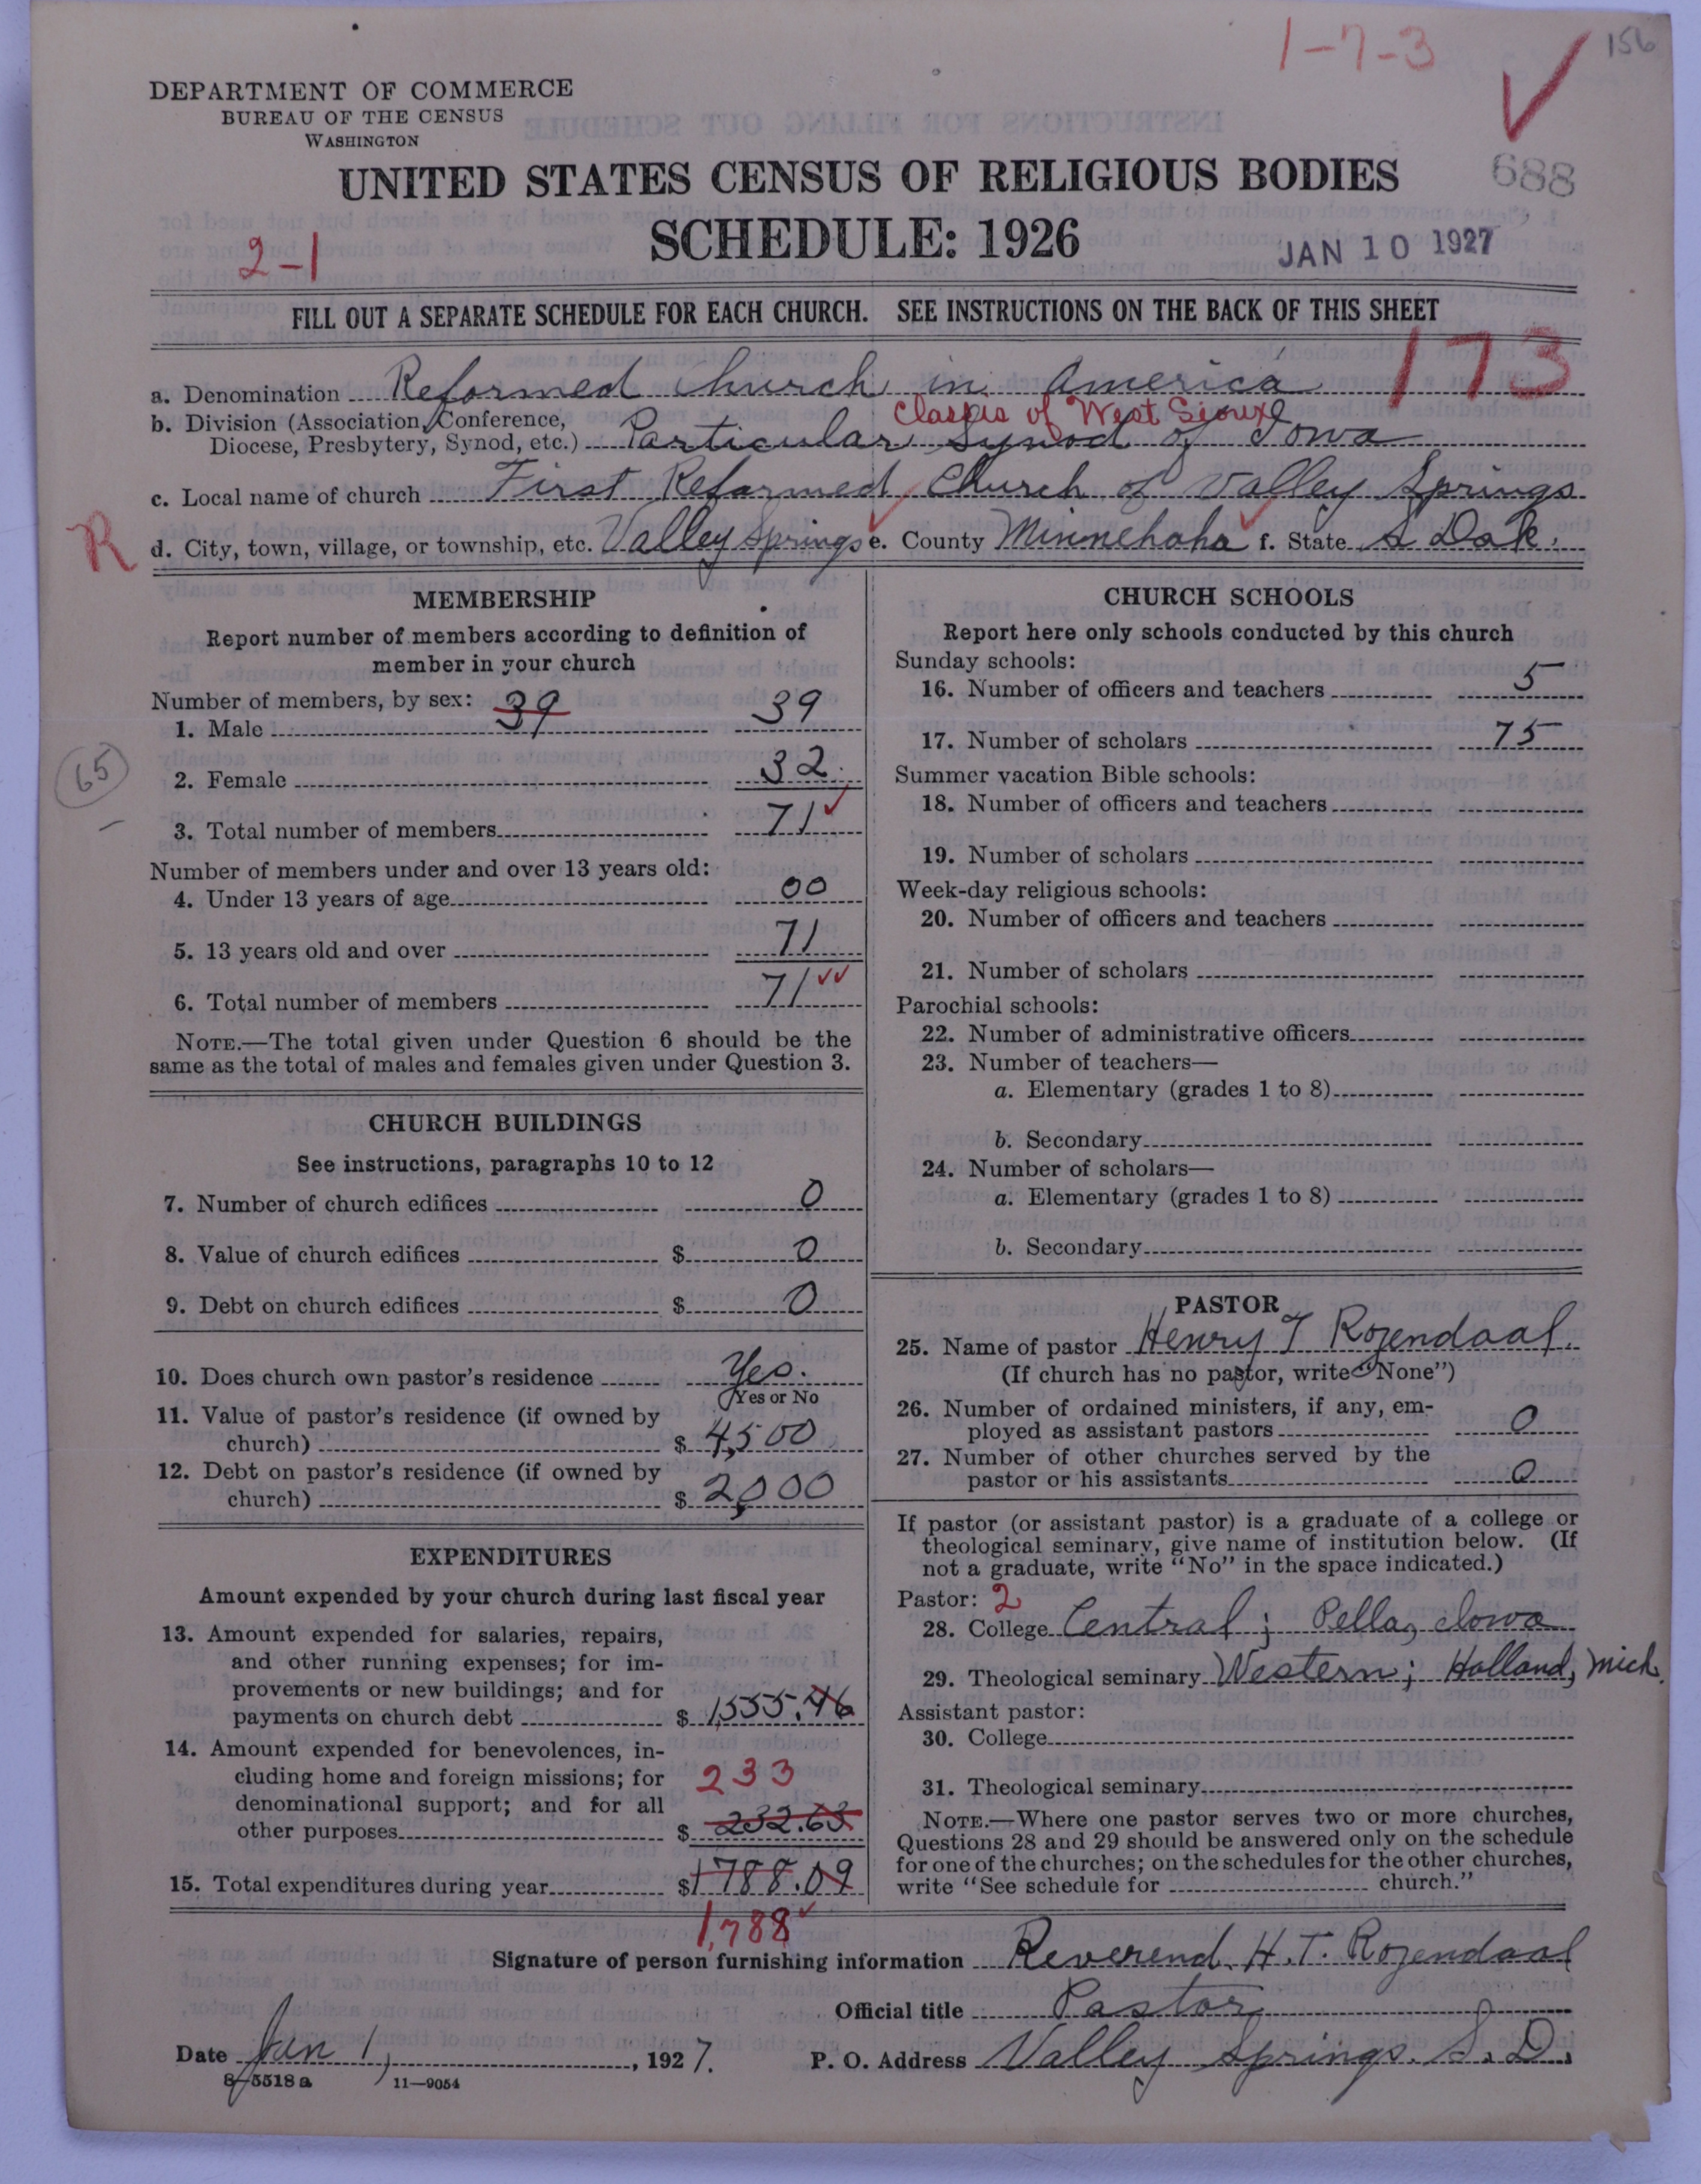 1-7-3
156
DEPARTMENT OF COMMERCE
BUREAU OF THE CENSUS
WASHINGTON
UNITED STATES CENSUS OF RELIGIOUS BODIES
688
SCHEDULE: 1926
2-1
JAN 10 1927
FILL OUT A SEPARATE SCHEDULE FOR EACH CHURCH. SEE INSTRUCTIONS ON THE BACK OF THIS SHEET
173
a. Denomination Reformed Church in America
Classis of West Sioux
b. Division (Association, Conference,
Diocese, Presbytery, Synod, etc.) Particular Synod of Iowa
c. Local name of church First Reformed Church of Valley Springs
R
d. City, town, village, or township, etc. Valley Springs e. County Minnehaha f. State S Dak.
MEMBERSHIP
Report number of members according to definition of
member in your church
Number of members, by sex: 39
1. Male 39
65
2. Female 32
3. Total number of members 71
Number of members under and over 13 years old:
4. Under 13 years of age 00
5. 13 years old and over 71
6. Total number of members 71
NOTE.—The total given under Question 6 should be the
same as the total of males and females given under Question 3.
CHURCH BUILDINGS
See instructions, paragraphs 10 to 12
7. Number of church edifices 0
8. Value of church edifices $ 0
9. Debt on church edifices $ 0
10. Does church own pastor's residence Yes.
Yes or No
11. Value of pastor's residence (if owned by
church) $ 4,500
12. Debt on pastor's residence (if owned by
church) $ 2,000
EXPENDITURES
Amount expended by your church during last fiscal year
13. Amount expended for salaries, repairs,
and other running expenses; for im-
provements or new buildings; and for
payments on church debt $ 1,555.46
14. Amount expended for benevolences, in-
cluding home and foreign missions; for
233
denominational support; and for all
other purposes $ 232.63
15. Total expenditures during year $1788.09
1,788
CHURCH SCHOOLS
Report here only schools conducted by this church
Sunday schools:
16. Number of officers and teachers 5
17. Number of scholars 75
Summer vacation Bible schools:
18. Number of officers and teachers
19. Number of scholars
Week-day religious schools:
20. Number of officers and teachers
21. Number of scholars
Parochial schools:
22. Number of administrative officers
23. Number of teachers—
a. Elementary (grades 1 to 8)
b. Secondary
24. Number of scholars—
a. Elementary (grades 1 to 8)
b. Secondary
PASTOR
25. Name of pastor Henry T Rozendaal.
(If church has no pastor, write "None")
26. Number of ordained ministers, if any, em-
ployed as assistant pastors 0
27. Number of other churches served by the
pastor or his assistants 0
If pastor (or assistant pastor) is a graduate of a college or
theological seminary, give name of institution below. (If
not a graduate, write "No" in the space indicated.)
Pastor: 2
28. College Central; Pella, Iowa
29. Theological seminary Western; Holland, Mich.
Assistant pastor:
30. College
31. Theological seminary
NOTE.—Where one pastor serves two or more churches,
Questions 28 and 29 should be answered only on the schedule
for one of the churches; on the schedules for the other churches,
write "See schedule for church."
Signature of person furnishing information Reverend H. T. Rozendaal
Official title Pastor
Date Jan 1, 1927. P. O. Address Valley Springs. S. D.
8-5518a 11—9054